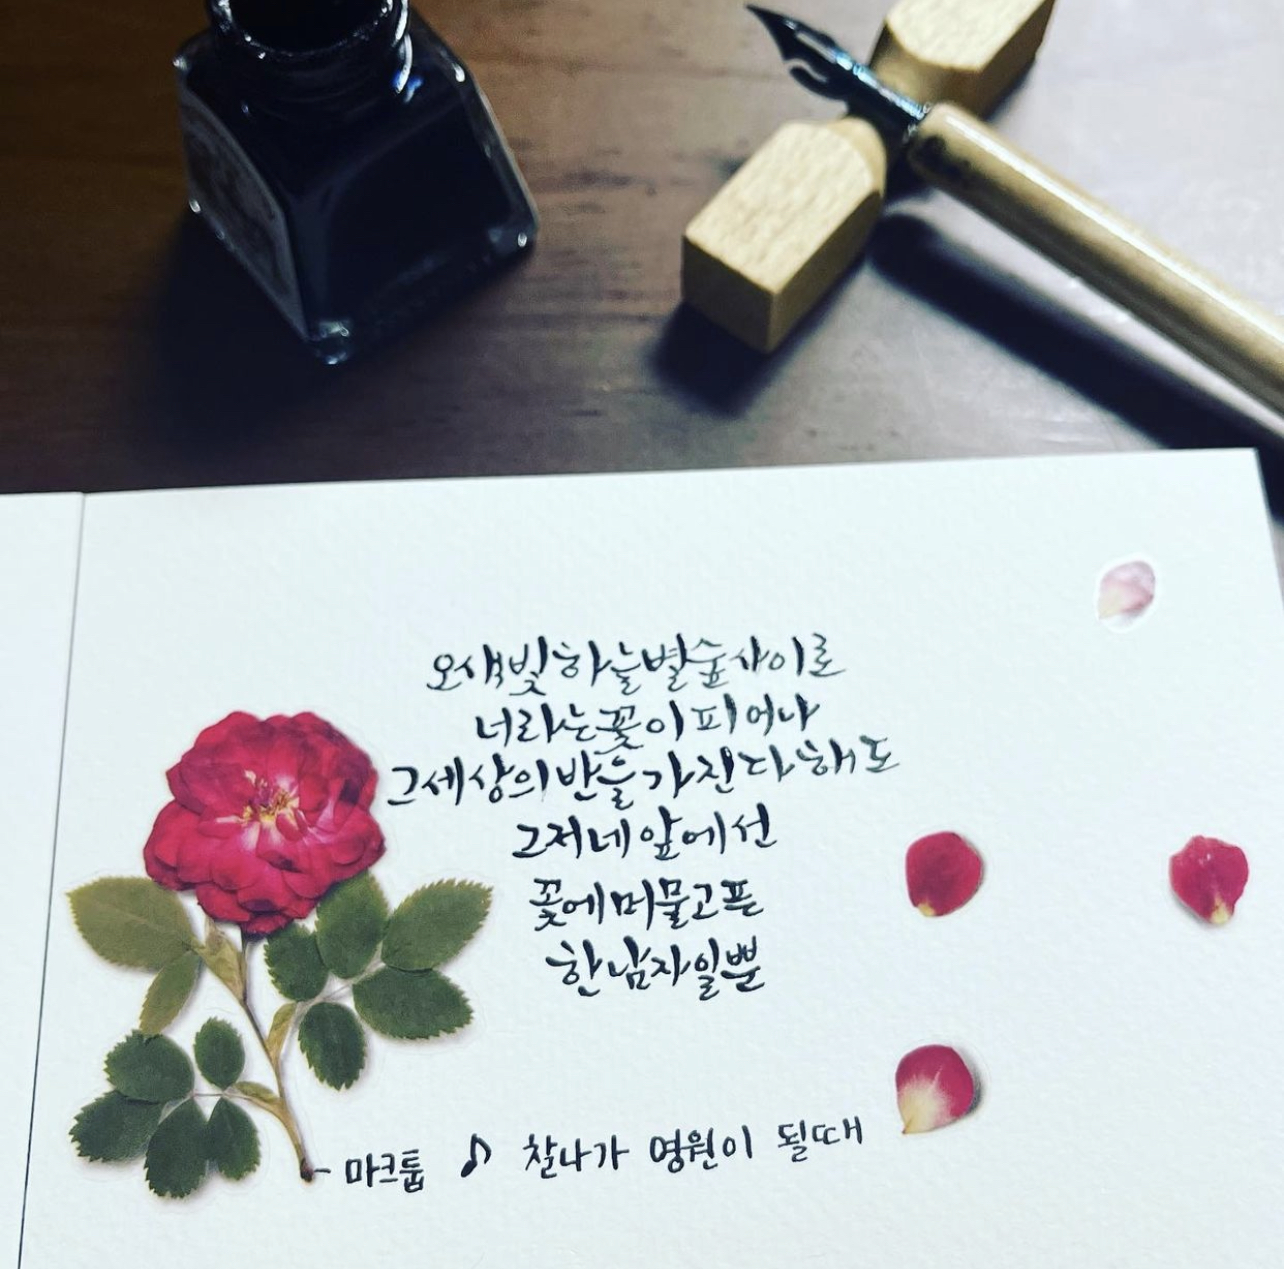 오색빛하늘별숲사이로
너라는꽃이피어나
그세상의반을가진다해도
그저네앞에선
꽃에머물고픈
한남자일뿐
- 마크툽 ♪ 찰나가 영원이 될때